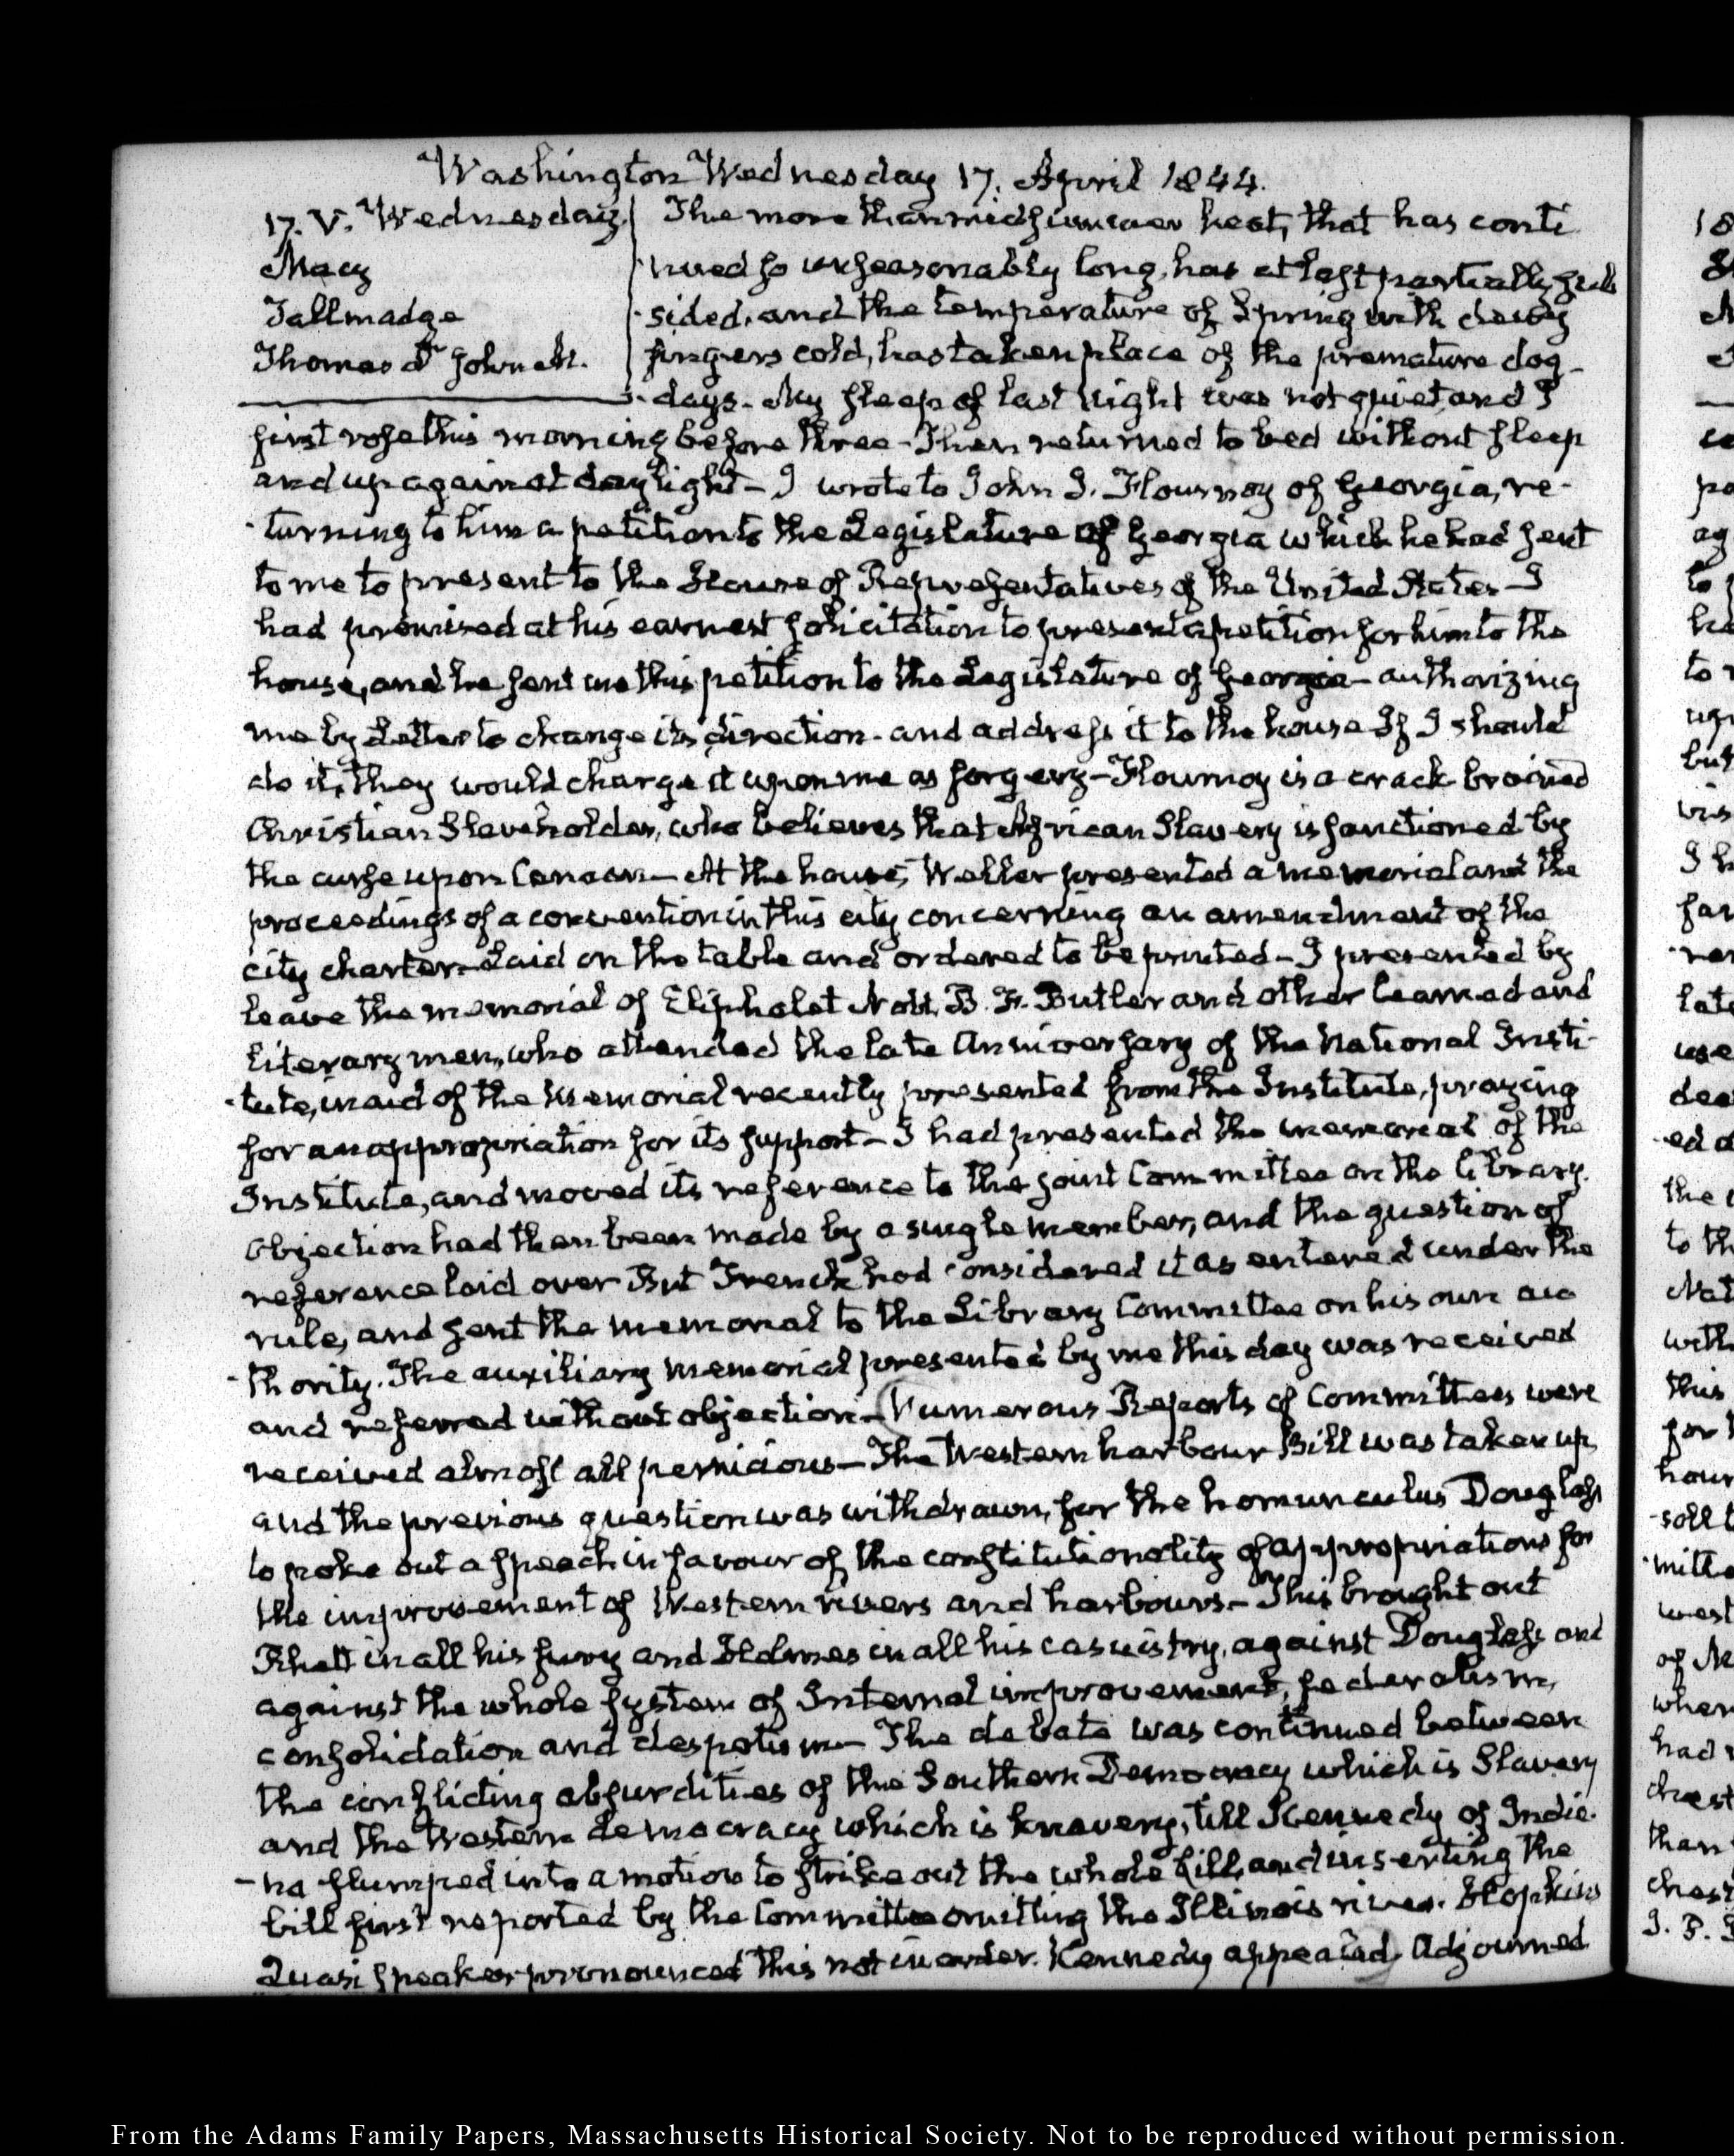 Washington Wednesday 17. April 1844.
17. V. Wednesday
Macy
Tallmadge
Thomas &
The more than midsummer heat, that has conti
nued so unseasonably long, has at last partially sub
sided, and the temperature of Spring with dewy
fingers cold, has taken place of the premature dog-
days. My sleep of last Night was not quiet and I
first rose this morning before three - Then returned to bed without sleep
and up against daylight - I wrote to John J. Flournoy of Georgia, re-
turning to him a petition to the Legislature of Georgia which he had sent
to me to present to the House of Representatives of the United States - I
had promised at his earnest solicitation to present a petition for him to the
house, and he sent me this petition to the Legislature of Georgia - authorizing
me by Letter to change its direction and address it to the house If I should
do it, they would charge it upon me as forgery - Flournoy is a crack brained
Christian Slave holder, who believes that African Slavery is sanctioned by
the curse upon Canaan - At the house, Weller presented a memorial and the
proceedings of a convention in this city concerning an amendment of the
city charter - Laid on the table and ordered to be printed - I presented by
leave the memorial of Eliphalet Nott, B. F. Butler and other learned and
literary men, who attended the late Anniversary of the National Insti-
-tute, in aid of the Memorial recently presented from the Institute, praying
for an appropriation for its support - I had presented the memorial of the
Institute, and moved its reference to the joint Committee on the library.
Objection had then been made by a single member, and the question of
reference laid over But French had considered it as entered under the
rule, and sent the memorial to the Library Committee on his own au
-thority. The auxiliary memorial presented by me this day was received
and referred without objection - Numerous Reports of Committees were
received almost all pernicious - The Western harbour Bill was taken up,
and the previous question was withdrawn, for the homunculus Douglass
to poke out a speech in favour of the constitutionality of appropriations for
the improvement of Western rivers and harbours - This brought out
Rhett in all his fury and Holmes in all his casuistry, against Douglass and
against the whole system of Internal improvement, federalism,
consolidation and despotism - The debate was continued between
the conflicting absurdities of the Southern Democracy which is Slavery
and the Western democracy which is knavery, till Kennedy of India-
-na slumped into a motion to strike out the whole bill, and inserting the
bill first reported by the Committee omitting the Illinois river. Hopkins
Quasi Speaker pronounced this not in order. Kennedy appealed, Adjourned
From the Adams Family Papers, Massachusetts Historical Society. Not to be reproduced without permission.